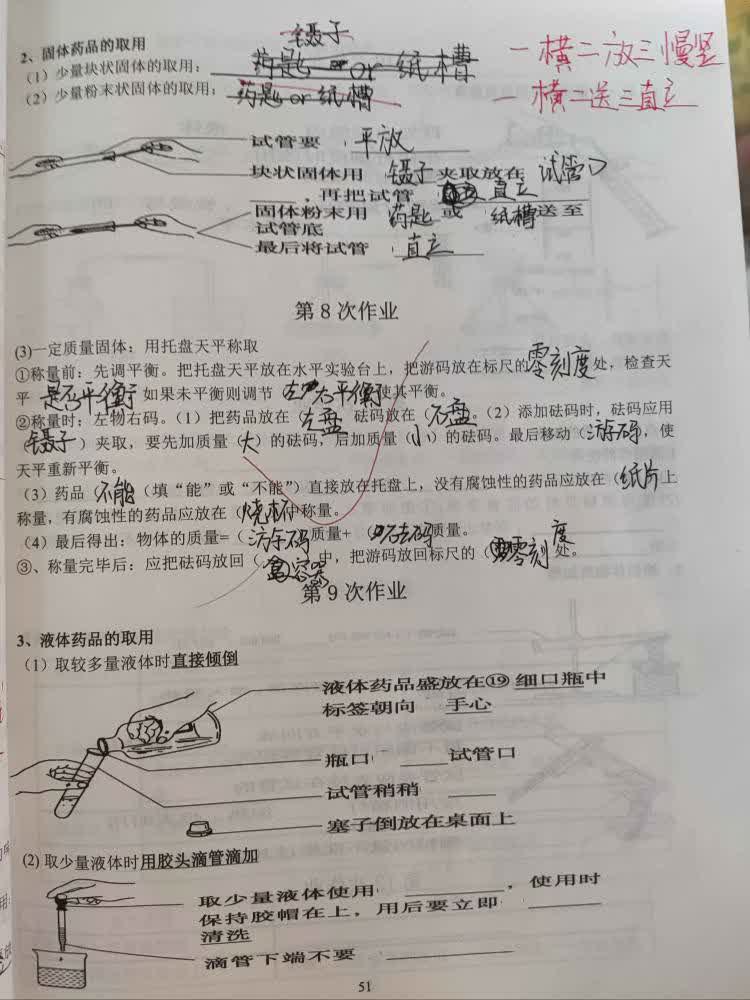 镊子
2、固体药品的取用
(1)少量块状固体的取用： 药匙 or 纸槽
一横二放三慢竖
(2)少量粉末状固体的取用：药匙 or 纸槽
一横二送三直立
试管要 平放
块状固体用 镊子 夹取放在 试管口
，再把试管 直立
固体粉末用 药匙 或 纸槽 送至
试管底
最后将试管 直立
第 8 次作业
(3)一定质量固体：用托盘天平称取
①称量前：先调平衡。把托盘天平放在水平实验台上，把游码放在标尺的零刻度处，检查天
平 是否平衡 如果未平衡则调节 左右平衡 使其平衡。
②称量时：左物右码。（1）把药品放在（左盘 砝码放在（右盘。（2）添加砝码时，砝码应用
（镊子）夹取，要先加质量（大）的砝码，后加质量（小）的砝码。最后移动（游码，使
天平重新平衡。
（3）药品（不能（填“能”或“不能”）直接放在托盘上，没有腐蚀性的药品应放在（纸片上
称量，有腐蚀性的药品应放在（烧杯中称量。
（4）最后得出：物体的质量=（游码质量+（砝码质量。
③、称量完毕后：应把砝码放回（容器 中，把游码放回标尺的（零刻度处。
第 9 次作业
3、液体药品的取用
（1）取较多量液体时直接倾倒
液体药品盛放在⑲ 细口瓶中
标签朝向 手心
瓶口 ____试管口
试管稍稍 ____
塞子倒放在桌面上
(2) 取少量液体时用胶头滴管滴加
取少量液体使用 ________，使用时
保持胶帽在上，用后要立即 ____
清洗
滴管下端不要 ____
51